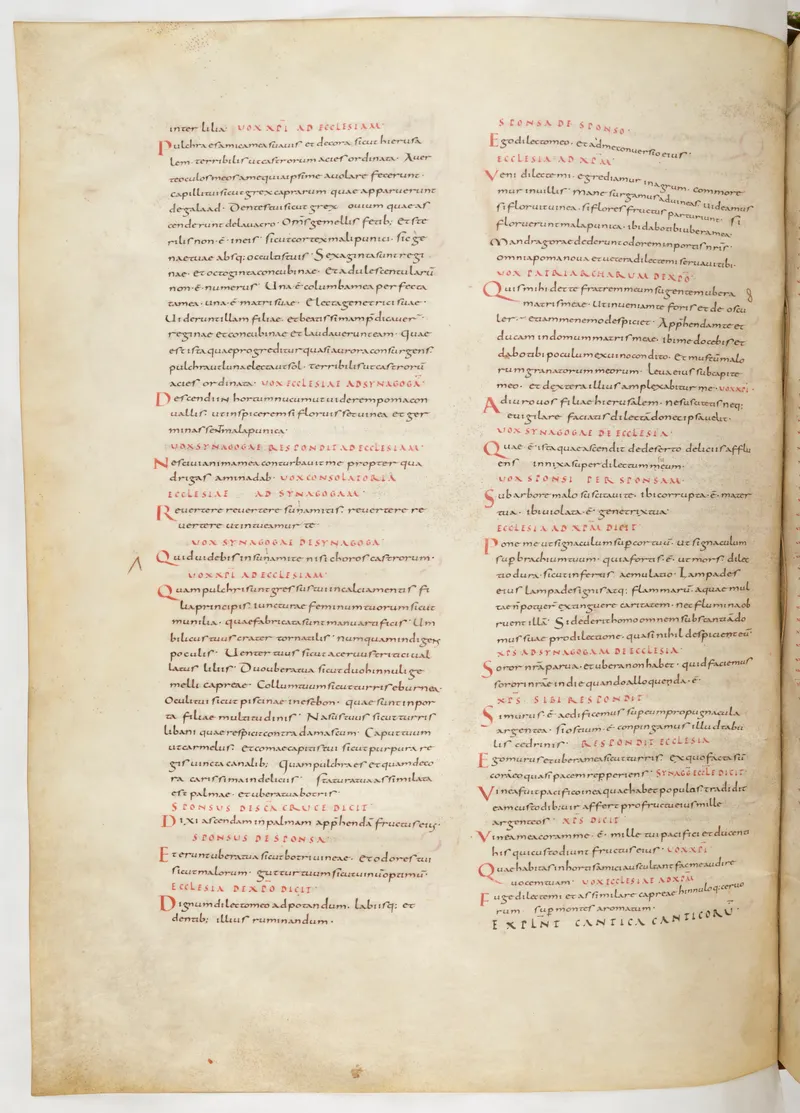 inter lilia· VOX XPI AD ECCLESIAM·
Pulchra es amica mea suauis et decora sicut hierusa
lem· terribilis ut castrorum acies ordinata· Auer
te oculos meos a me quia ipsi me auolare fecerunt·
capilli tui sicut grex caprarum quae apparuerunt
de galaad· Dentes tui sicut grex ouium quae as
cenderunt de lauacro· Om̅s gemellis fetib; et ste
rilis non ·e̅· in eis· sicut cortex mali punici· sic ge
nae tuae absq; occultis tuis· Sexaginta sunt regi
nae· et octoginta concubinae· et adulescentularu̅
non ·e̅· numerus· Una ·e̅· columba mea perfecta
mea· una ·e̅· matris suae· electa genetrici suae·
Uiderunt illam filiae· et beatissimam p̅dicauer̅·
reginae et concubinae et laudauerunt eam· Quae
est ista quae progreditur quasi aurora consurgens
pulchra ut luna electa ut sol· terribilis ut castroru̅
acies ordinata· VOX ECCLESIAE AD SYNAGOGA·
Descendi in hortum nucum ut uiderem poma con
uallis· ut inspicerem si floruisset uinea et ger
minassent mala punica·
VOX SYNAGOGAE RESPONDIT AD ECCLESIAM·
Nesciui anima mea conturbauit me propter qua
drigas aminadab· VOX CONSOLATORIA
ECCLESIAE AD SYNAGOGAM·
Reuertere reuertere sunamitis· reuertere re
uertere ut intueamur te·
VOX SYNAGOGAE DE SYNAGOGA·
Quid uidebis in sunamite nisi choros castrorum·
VOX XPI AD ECCLESIAM·
Quam pulchri sunt gressus tui in calciamentis fi
lia principis· iuncturae feminum tuorum sicut
munilia· quae fabricata sunt manu artificis· Um
bilicus tuus crater tornatilis· numquam indigens
poculis· Uenter tuus sicut aceruus tritici ual
latus liliis· Duo ubera tua sicut duo hinnuli ge
melli capreae· Collum tuum sicut turris eburnea·
Oculi tui sicut piscinae in esebon· quae sunt in por
ta filiae multitudinis· Nasus tuus sicut turris
libani quae respicit contra damascum· Caput tuum
ut carmelus· et comae capitis tui sicut purpura re
gis uincta canalib; Quam pulchra es et quam deco
ra carissima in deliciis· statura tua assimilata
est palmae· et ubera tua botris·
SPONSUS DE SCA CRUCE DICIT·
Dixi ascendam in palmam app̅hendā fructus eius·
SPONSUS DE SPONSA·
Et erunt ubera tua sicut botri uineae· et odor oris tui
sicut malorum· guttur tuum sicut uinu̅ optimu̅·
ECCLESIA DE XPO DICIT·
Dignum dilecto meo ad potandum· labiisq; et
dentib; illius ruminandum·
SPONSA DE SPONSO·
Ego dilecto meo· et ad me conuersio eius·
ECCLESIA AD XPM·
Veni dilecte mi· egrediamur in agrum· commore
mur in uillis· mane surgamus ad uineas uideamus
si floruit uinea· si flores fructus parturiunt· si
floruerunt mala punica· ibi dabo tibi ubera mea·
Mandragorae dederunt odorem in portis nr̅is·
omnia poma noua et uetera dilecte mi seruaui tibi·
VOX PATRIARCHARUM DE XPO·
Quis mihi det te fratrem meum sugentem ubera
matris meae· Ut inueniam te foris et deoscu
ler· et iam me nemo despiciet· App̅hendam te et
ducam in domum matris meae· ibi me docebis et
dabo tibi poculum ex uino condito· et mustu̅ malo
rum granatorum meorum· Leua eius sub capite
meo· et dextera illius amplexabitur me· VOX XPI·
Adiuro uos filiae hierusalem· ne suscitetis neq;
euigilare faciatis dilectā donec ipsa uelit·
VOX SYNAGOGAE DE ECCLESIA·
Quae ·e̅· ista quae ascendit de deserto deliciis afflu
ens innixa super dilectum suum·
VOX SPONSI DE SPONSAM·
Sub arbore malo suscitaui te· ibi corrupta ·e̅· mater
tua· ibi uiolata ·e̅· genetrix tua·
ECCLESIA AD XPM DICIT·
Pone me ut signaculum sup cor tuu̅· ut signaculum
sup brachium tuum· quia fortis ·e̅· ut mors dilec
tio dura sicut inferus aemulatio· Lampades
eius lampades ignis atq; flammaru̅· aquae mul
tae n̅ potuer̅ extinguere caritatem· nec flumina ob
ruent illā· Si dederit homo omnem substantiā do
mus suae pro dilectione· quasi nihil despicient eu̅·
XPS AD SYNAGOGAM DE ECCLESIA·
Soror nr̅a parua· et ubera non habet· quid faciemus
sorori nr̅ae in die quando alloquenda ·e̅·
XPS SIBI RESPONDIT·
Si murus ·e̅· aedificemus sup eum propugnacula
argentea· si ostium ·e̅· conpingamus illud tabu
lis cedrinis· RESPONDIT ECCLESIA
Ego murus et ubera mea sicut turris· ex quo facta su̅
corā eo quasi pacem repperiens· SYNAGO ECCLE DICIT·
Vinea fuit pacifico in ea quae habet populos tradidit
eam custodib; uir affert pro fructu eius mille
argenteos· XPS DICIT·
Vinea mea coram me ·e̅· mille tui pacifici et ducenti
his qui custodiunt fructus eius· VOX XPI·
Quae habitas in hortis amici auscultant fac me audire
uocem tuam· VOX ECCLESIAE AD XPM
Fuge dilecte mi et assimilare capreae hinnuloq; ceruo
rum sup montes aromatum·
EXPLNT CANTICA CANTICORU̅